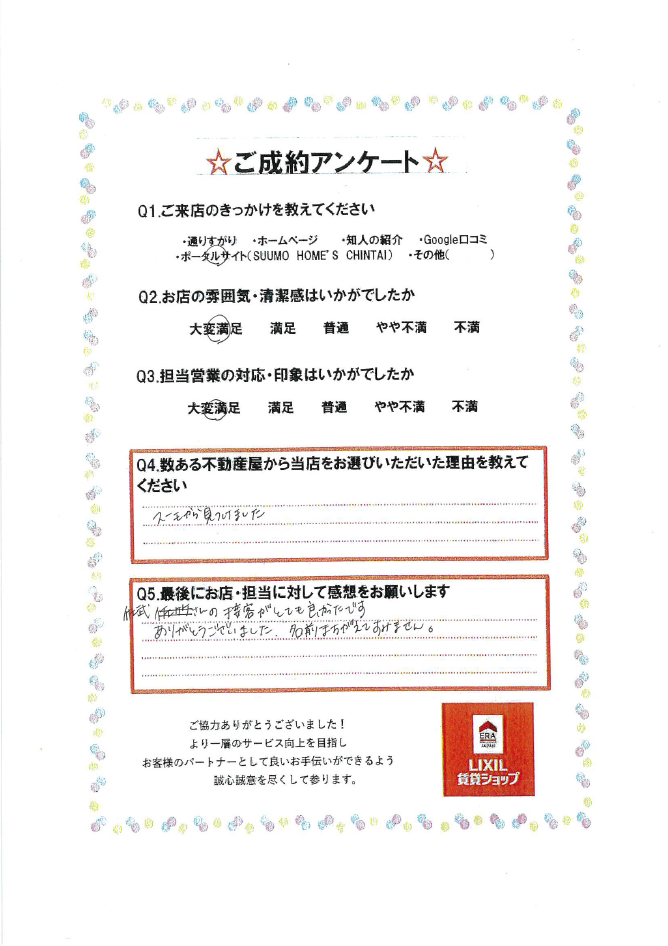 ☆ご成約アンケート☆
Q1.ご来店のきっかけを教えてください
・通りすがり ・ホームページ ・知人の紹介 ・Google口コミ
・ポータルサイト(SUUMO HOME'S CHINTAI) ・その他( )
Q2.お店の雰囲気・清潔感はいかがでしたか
大変満足 満足 普通 やや不満 不満
Q3.担当営業の対応・印象はいかがでしたか
大変満足 満足 普通 やや不満 不満
Q4.数ある不動産屋から当店をお選びいただいた理由を教えて
ください
スーモから見つけました
Q5.最後にお店・担当に対して感想をお願いします
さんの接客がとても良かたです
ありがとうございました。名前まちがえてすみません。
ご協力ありがとうございました!
より一層のサービス向上を目指し
お客様のパートナーとして良いお手伝いができるよう
誠心誠意を尽くして参ります。
ERA
JAPAN
LIXIL
賃貸ショップ